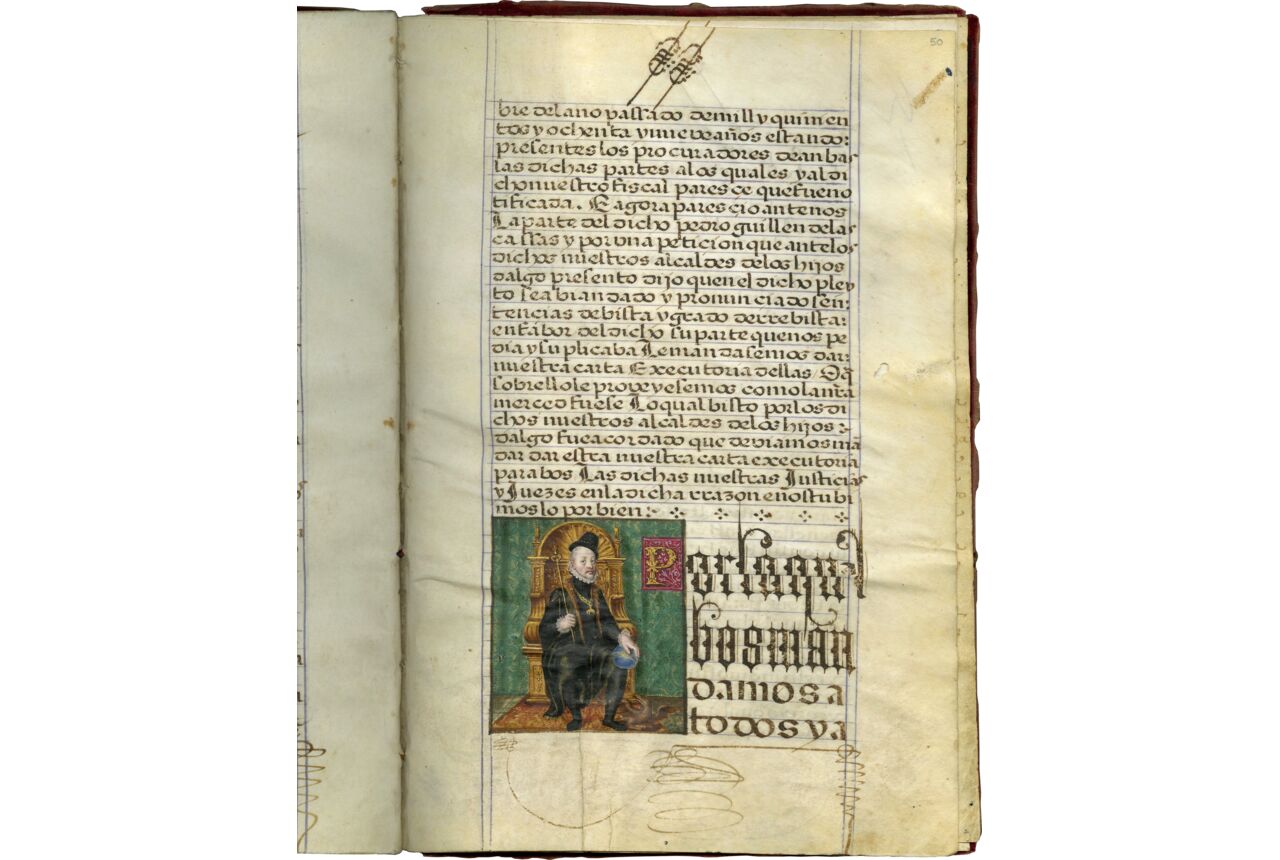 50
bre del año passado de mill y quinien
tos y ochenta y nueve años estando:
presentes los procuradores de anbas
las dichas partes a los quales y al di
cho nuestro fiscal paresçe que fue no
tificada. E agora paresçio ante nos
La parte del dicho pedro guillen de las
cassas y por una petiçion que ante los
dichos nuestros alcaldes de los hijos
dalgo presento dijo que en el dicho pley
to se abian dado y pronunciado sen:
tencias de bista y grado de rrebista:
en fabor del dicho su parte que nos pe
dia y suplicaba Le mandasemos dar:
nuestra carta Executoria dellas / O q̃
sobrello le proveyesemos como la nr̃a
merced fuese Lo qual bisto por los di
chos nuestros alcaldes de los hijos:
dalgo fue acordado que deviamos mã
dar dar esta nuestra carta executoria
para bos Las dichas nuestras Justicias
y Juezes en la dicha rrazon e nos tubi
mos lo por bien:
Por la qual
bos man
damos a
todos y a